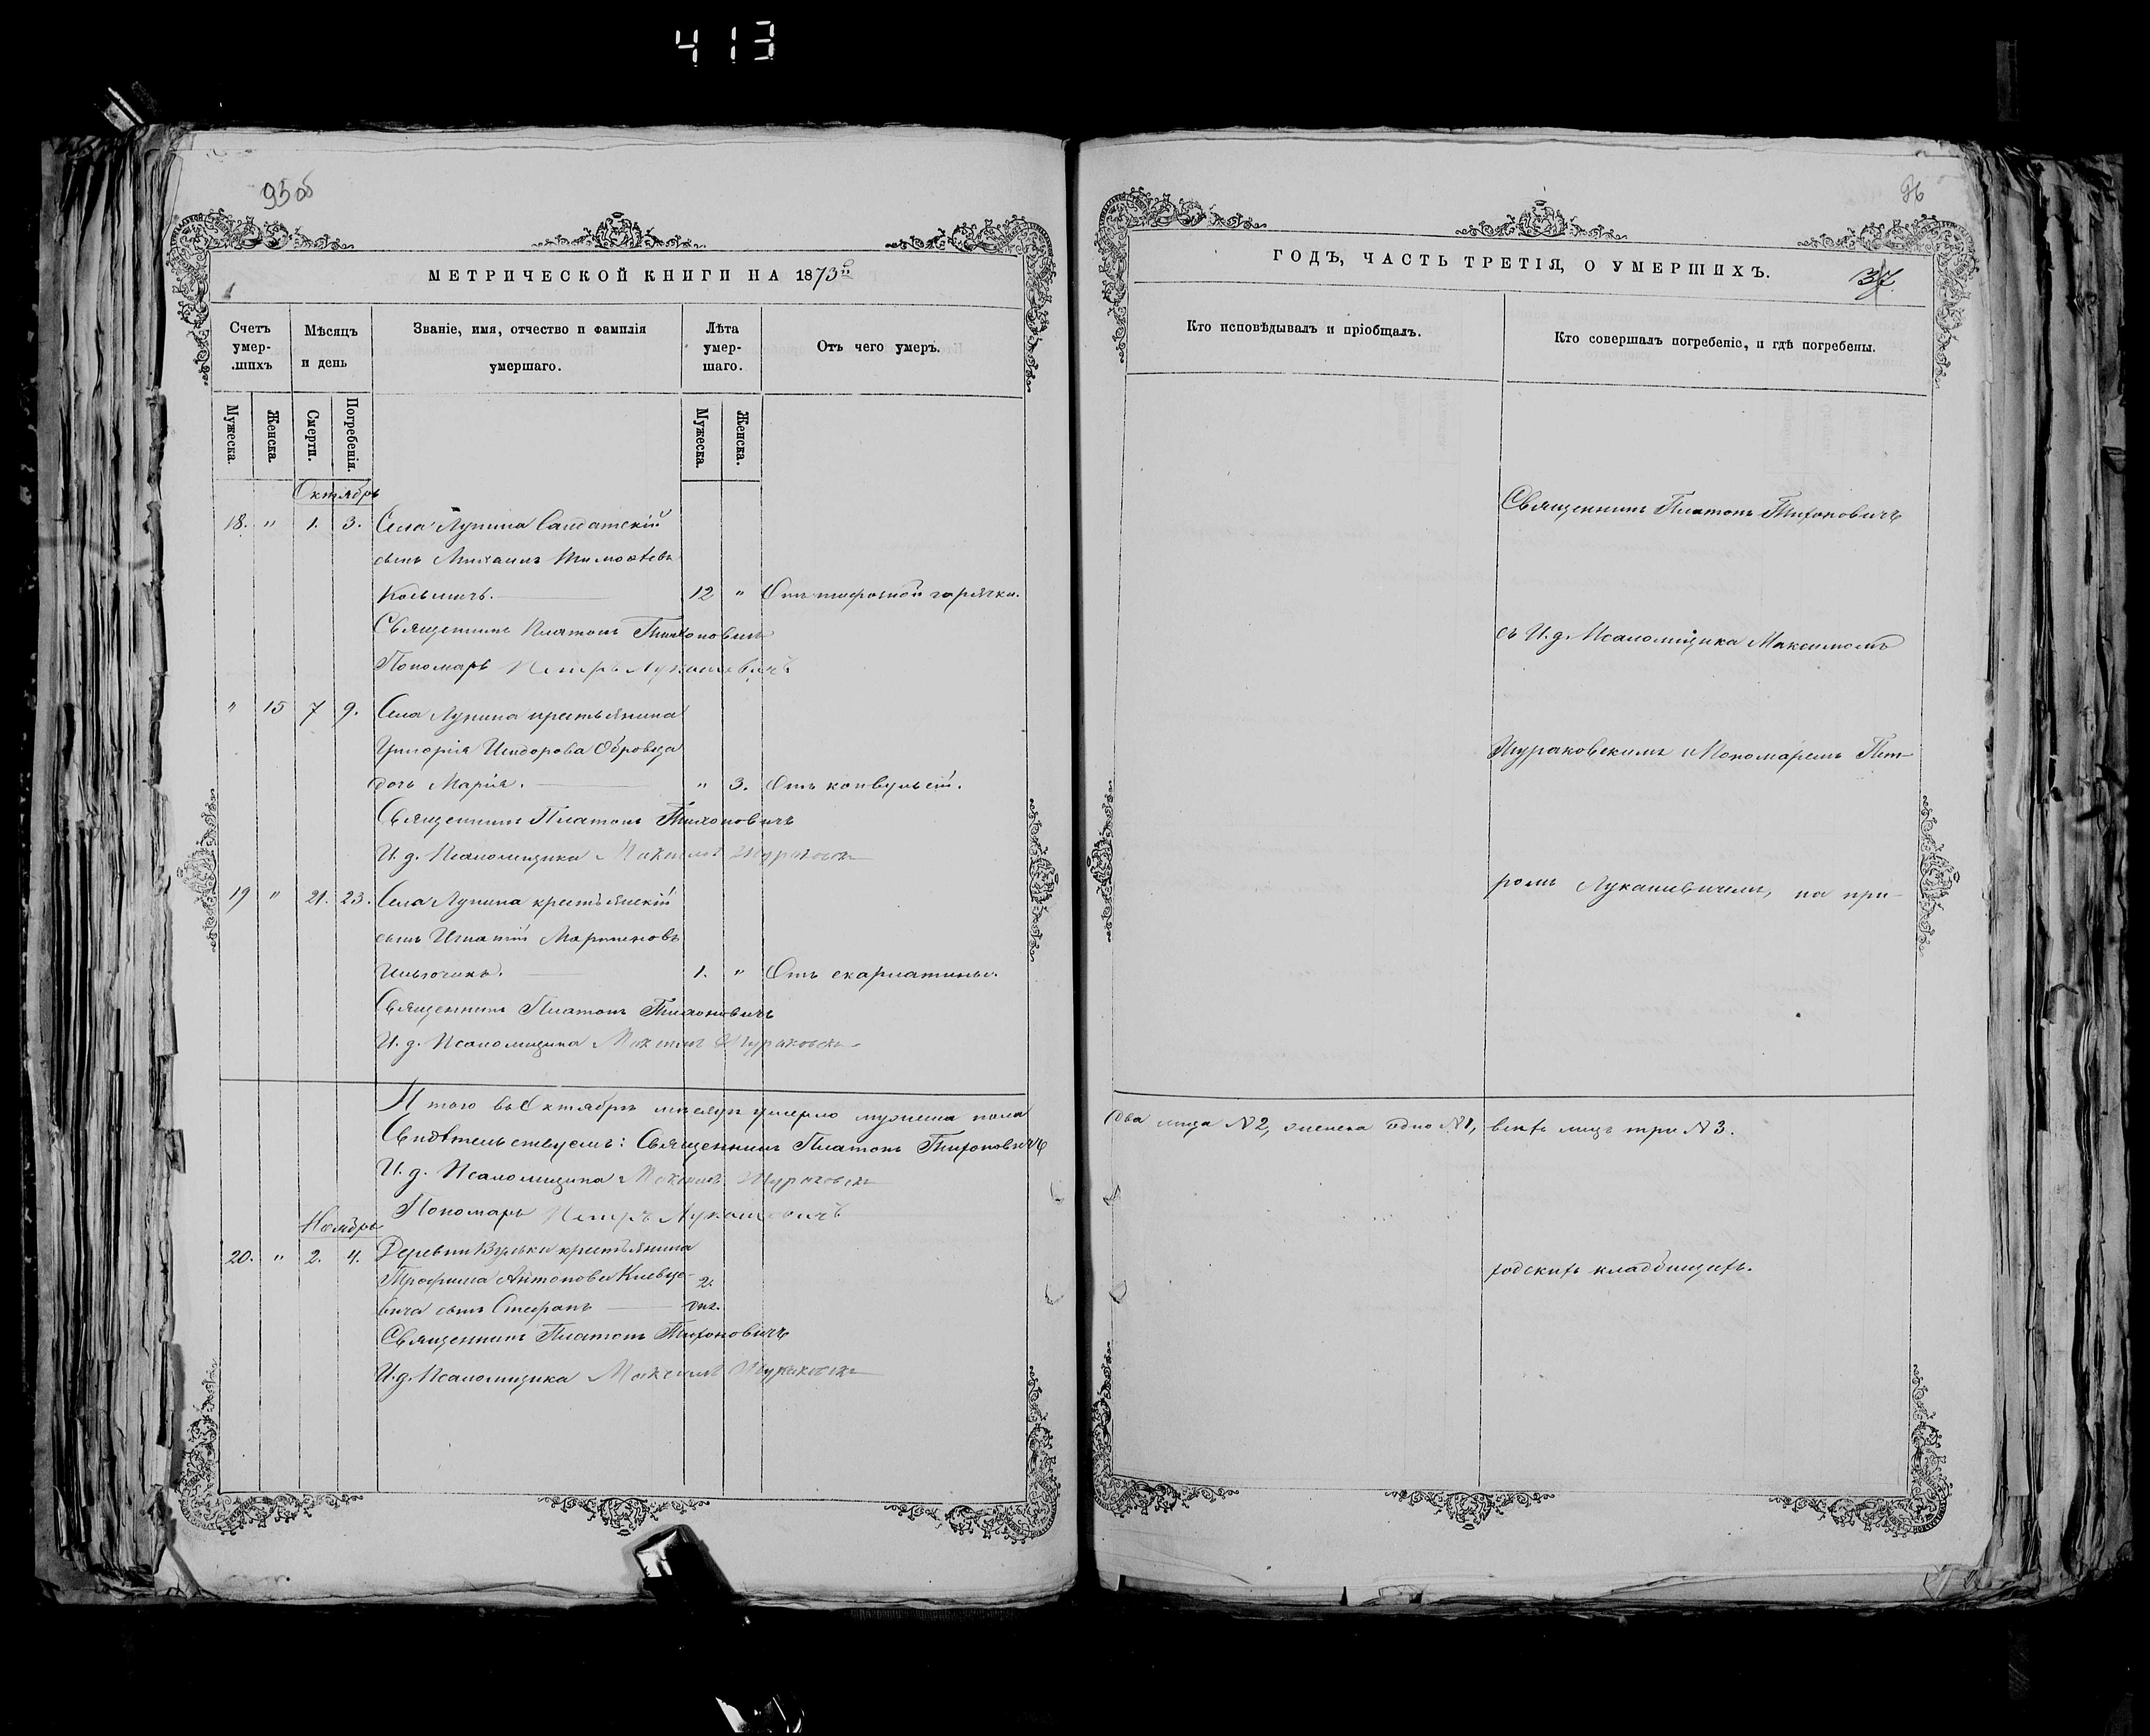 413
95об
МЕТРИЧЕСКОЙ КНИГИ НА 1873й
Счетъ умер-шихъ
Мѣсяцъ и день
Званіе, имя, отчество и фамилія умершаго.
Лѣта умер-шаго.
Отъ чего умеръ.
Мужеска.
Женска.
Смерти.
Погребенія.
Мужеска.
Женска.
Октябрь
18. " 1. 3. Села Лунина Солдатскій
сынъ Михаилъ Тимоѳеевъ
12 " Отъ тифозной горячки.
Священникъ Платонъ Тихоновичъ
Пономарь Петръ Лукашевичъ
" 15 7 9. Села Лунина крестьянина
Григорія Исидорова
дочь Марія. " 3. Отъ конвульсій.
Священникъ Платонъ Тихоновичъ
И. д. Псаломщика Максимъ
19 " 21. 23. Села Лунина крестьянскій
сынъ Игнатій Мартиновъ
1. " Отъ скарлатины.
Священникъ Платонъ Тихоновичъ
И. д. Псаломщика Максимъ
Итого въ Октябрѣ мѣсяцѣ умерло мужеска пола
Свидѣтельствуемъ: Священникъ Платонъ Тихоновичъ
И. д. Псаломщика Максимъ
Пономарь Петръ Лукашевичъ
Ноябрь
20. " 2. 4. Деревни Вульки крестьянина
Трофима Антонова
2.
вича сынъ Стефанъ дня.
Священникъ Платонъ Тихоновичъ
И. д. Псаломщика Максимъ
96
ГОДЪ, ЧАСТЬ ТРЕТІЯ, О УМЕРШИХЪ.
37.
Кто исповѣдывалъ и пріобщалъ.
Кто совершалъ погребеніе, и гдѣ погребены.
Священникъ Платонъ Тихоновичъ
съ И. д. Псаломщика Максимомъ
и Пономаремъ Пет-
ромъ Лукашевичемъ, на при-
два лица №2, женска одно №1, всѣхъ лицъ три №3.
ходскихъ кладбищахъ.